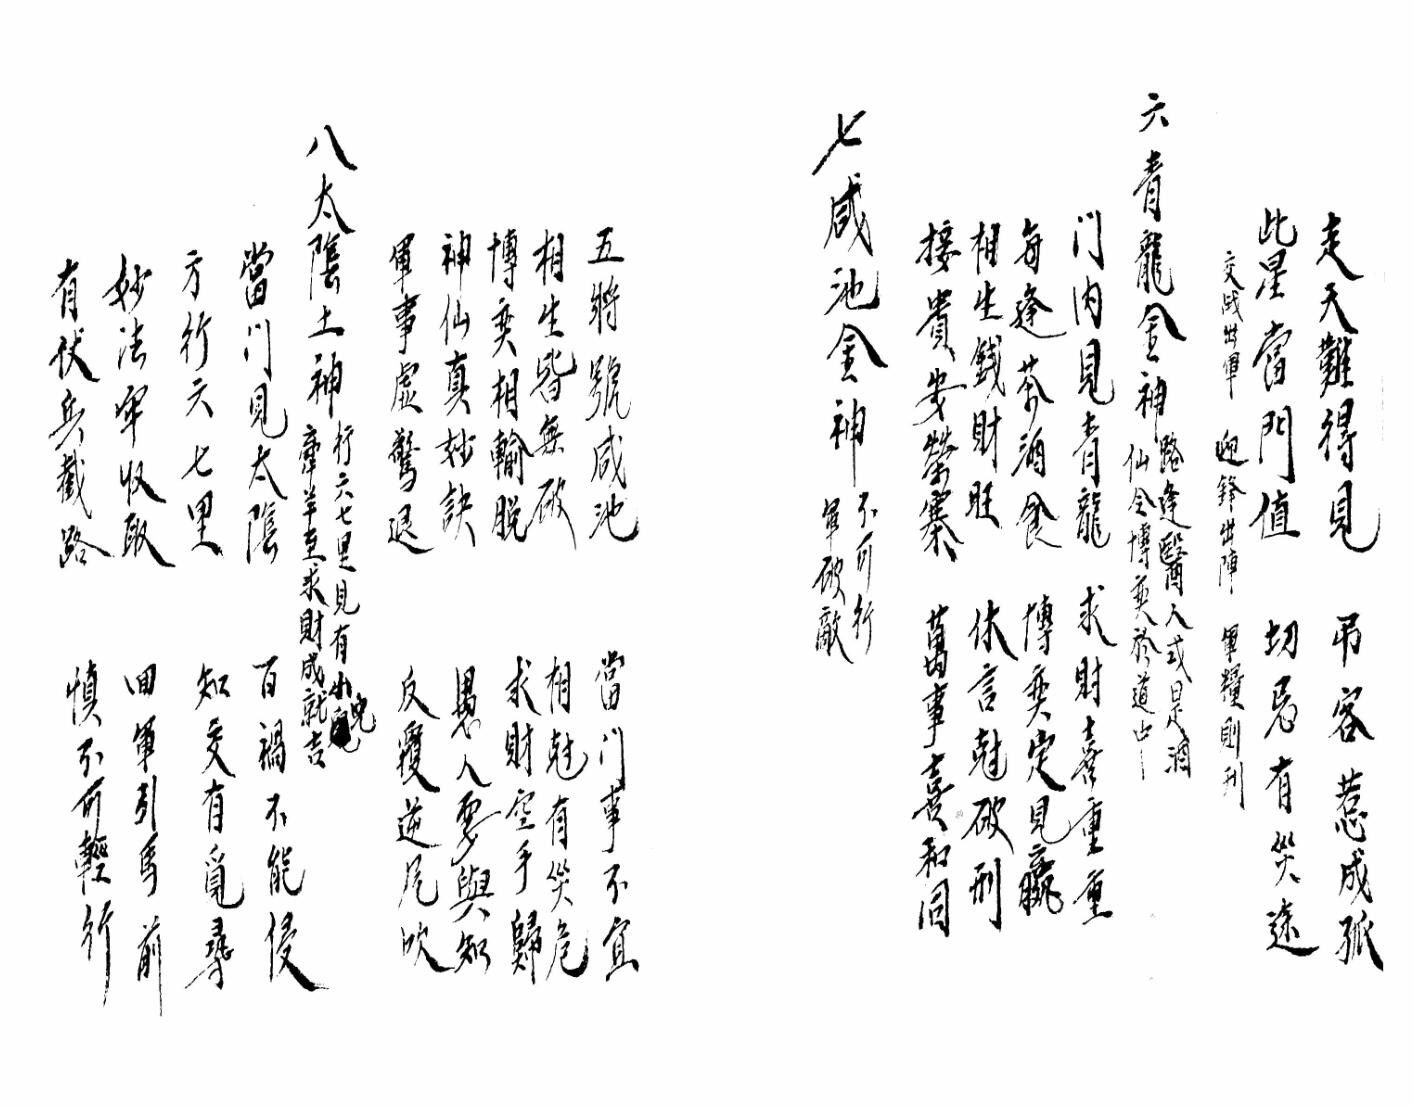 走天難得見　吊客惹成孤
此星當門值　切忌有災迍
交戰出軍　迎鋒出陣　軍糧則刑
六青龍金神
路逢醫人或是酒
仙令博奕於道中
門內見青龍　求財喜重重
每逢茶酒食　博奕定見贏
相生錢財旺　休言尅破刑
接貴安榮寨　萬事喜和同
七咸池金神
不可行
軍破敵
五將號咸池　當門事不宜
相生皆無破　相尅有災危
博奕相輸脫　求財空手歸
神仙真妙訣　愚人要與知
軍事虛驚退　反覆逆風吹
八太陰土神
行六七里見有小兒
牽羊至求財成就吉
當門見太陰　百禍不能侵
方行六七里　知交有覓尋
妙法牢收取　回軍引馬前
有伏兵截路　慎不可輕行